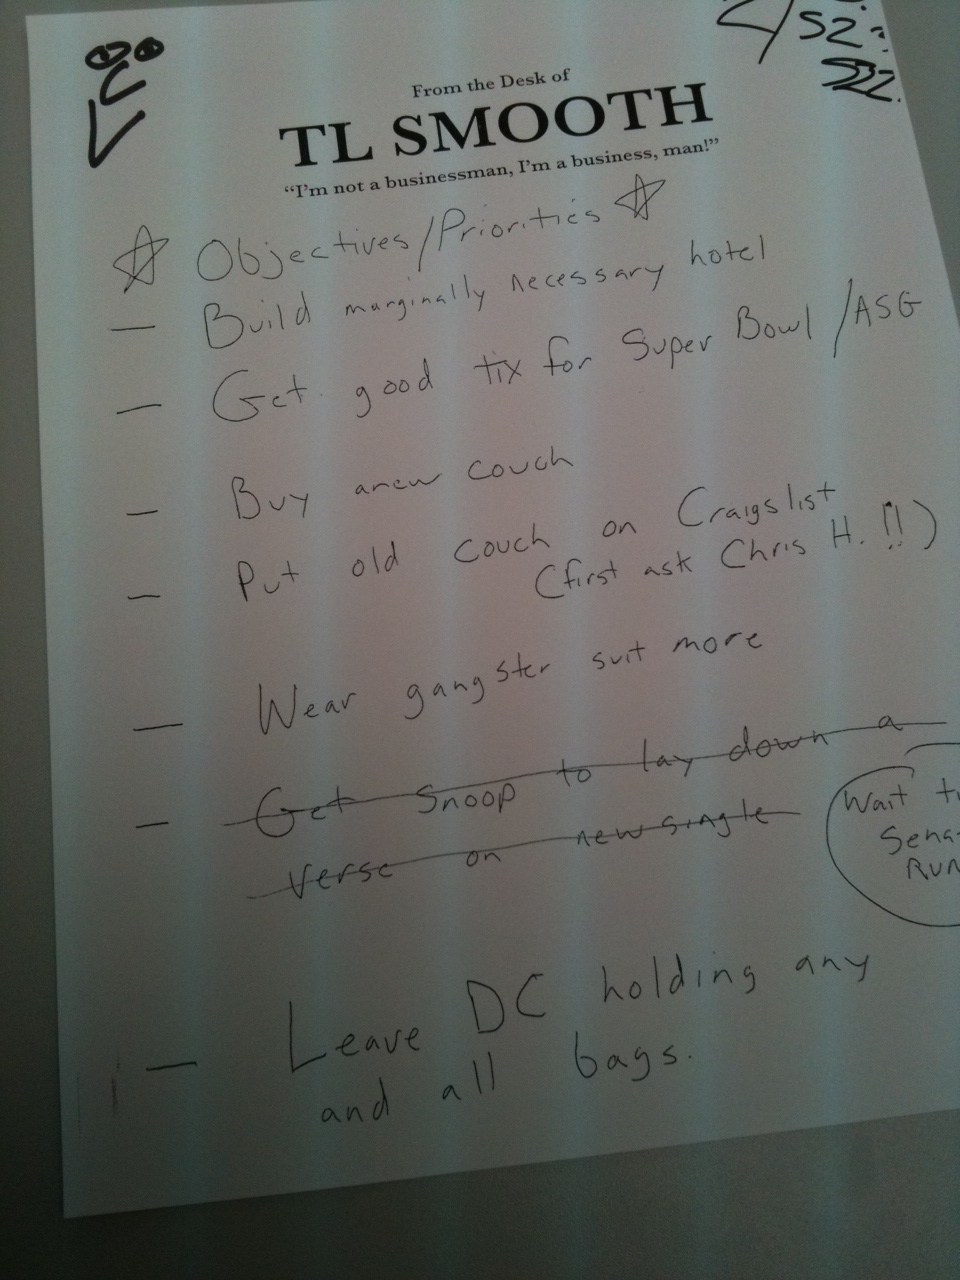 From the Desk of
TL SMOOTH
“I’m not a businessman, I’m a business, man!”
☆ Objectives/Priorities ☆
— Build marginally necessary hotel
— Get good tix for Super Bowl/ASG
— Buy a new couch
— Put old couch on Craigslist
(first ask Chris H. !!)
— Wear gangster suit more
— Get Snoop to lay down a
verse on new single
Wait
— Leave DC holding any
and all bags.